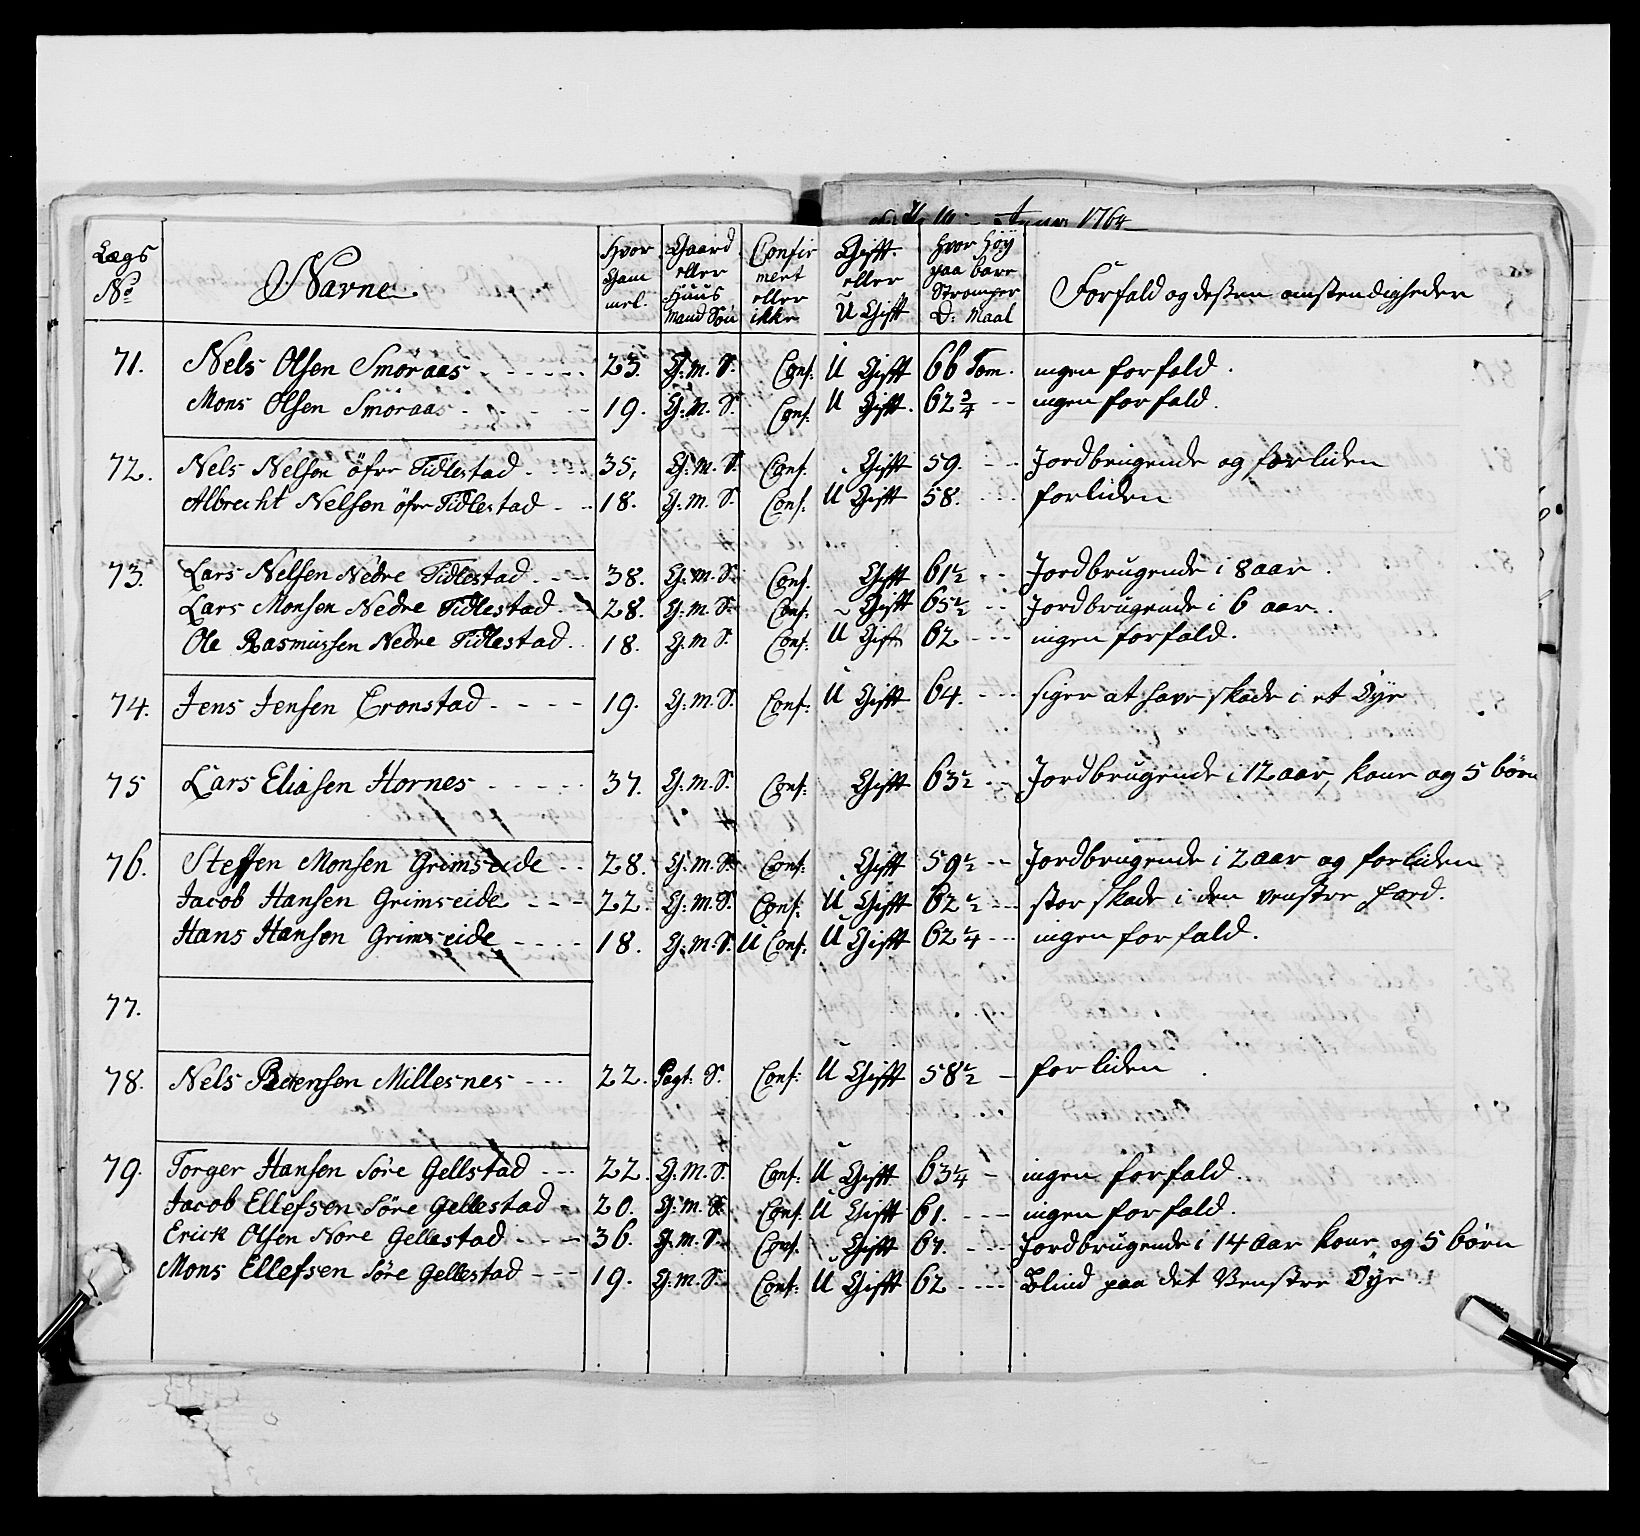 Anno 1764
Lægs No Navne Hvor Gam mel. Gaard eller Huus mand Søn Confir meret eller ikke Gift eller U Gift Hvor Høy paa bare Strømper D: Maal Forfald og desten omstendigheder
71. Nels Olsen Smöraas 23. G: m. S. Conf: U Gifft 66 Tom. ingen forfald.
Mons Olsen Smöraas 19. G: m. S. Conf: U Gifft. 62 3/4 ingen forfald.
72. Nels Nelsen öfre Tidlestad 35, G: m. S. Conf. Gifft 59. Jordbrugende og forliden
Albrecht Nelsen öfre Tidlestad 18. G: m. S. Conf. U Gifft 58. forliden
73. Lars Nelsen Nedre Tidlestad 38. G: m. S. Conf. Gifft 61 1/2 Jordbrugende i 8 aar.
Lars Monsen Nedre Tidlestad 28. G: m. S. Conf: Gifft 65 1/2 Jordbrugende i 6 aar.
Ole Rasmussen Nedre Tidlestad. 18. G: m S. Conf: U Gift 62 ingen forfald.
74. Jens Jensen Cronstad 19. G: m. S. Conf: U Gifft 64. siger at have skade i et Öye
75 Lars Eliasen Hornes 37. G: m. S. Conf: Gifft 63 1/2 Jordbrugende i 12 aar, kone og 5 börn
76. Steffen Monsen Grimseide 28. G: m. S. Conf: Gifft 59 1/2 Jordbrugende i 2 aar og forliden
Jacob Hansen Grimseide 22. G: m. S. Conf: U Gifft 62 1/2 stor skade i den venstre
Hans Hansen Grimseide 18. G: m. S. U Conf: U Gifft 62 1/4 ingen forfald.
77.
78. Nels Millesnes 22. Pagt: S. Conf: U Gifft 58 1/2 forliden
79. Torger Hansen Söre Gellstad 22. G: m. S. Conf: U Gifft 63 1/4 ingen forfald.
Jacob Ellefsen Söre Gellestad 20. G: m. S. Conf. U Gifft 61. ingen forfald.
Erick Olsen Nore Gellestad 36. G: m. S. Conf. Gifft 67. Jordbrugende i 14 aar kone og 5 börn
Mons Ellefsen Söre Gellestad 19. G: m. S. Conf: U Gifft 62 Blind paa det Venstre Öye.